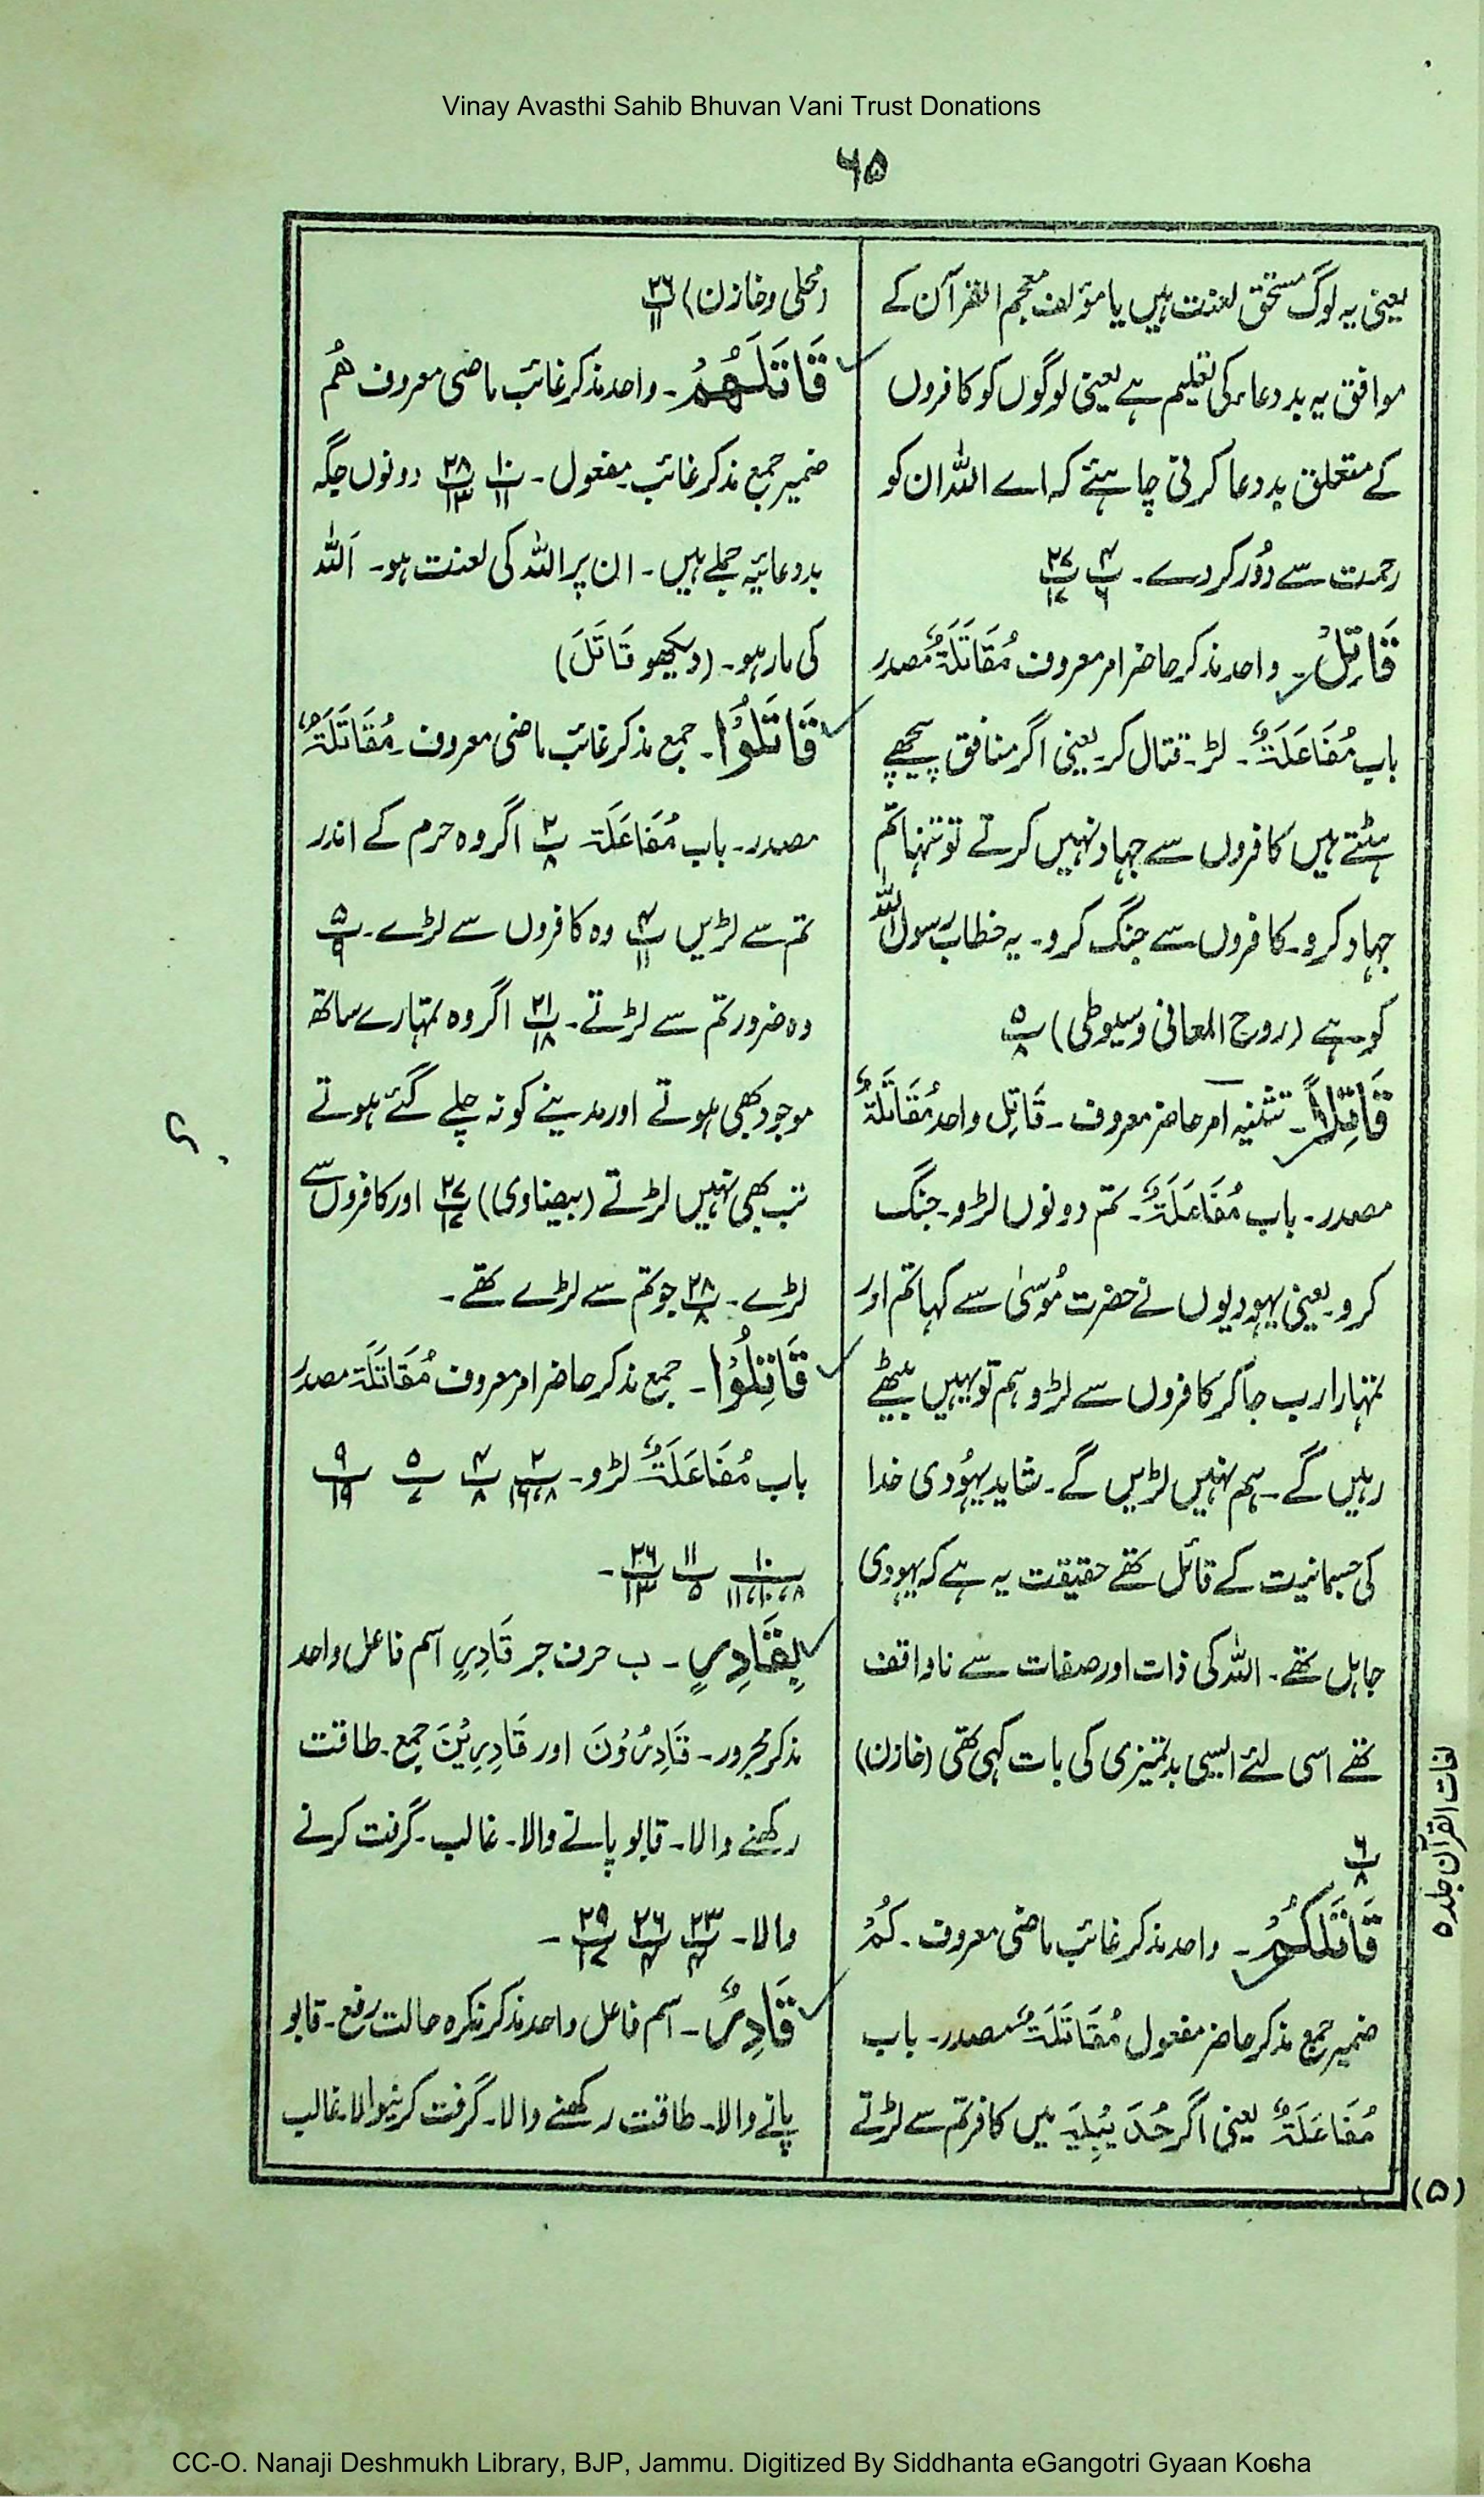 Vinay Avasthi Sahib Bhuvan Vani Trust Donations
۶۵
یعنی یہ لوگ مستحق لعنت ہیں یا مؤلف معجم القرآن کے
موافق یہ بددعاء کی تعلیم ہے یعنی لوگوں کو کافروں
کے متعلق بددعا کرنی چاہئے کہ اے اللہ ان کو
رحمت سے دُور کر دے۔ پ۴/۶ پ۲۷/۱۷
قَاتِلْ۔ واحد مذکر حاضر امر معروف مُقَاتَلَۃٌ مصدر
باب مُفَاعَلَۃٌ۔ لڑ۔ قتال کر۔ یعنی اگر منافق پیچھے
ہٹتے ہیں کافروں سے جہاد نہیں کرتے تو تنہا تم
جہاد کرو۔ کافروں سے جنگ کرو۔ یہ خطاب رسول اللہ
کو ہے (روح المعانی وسیوطی) پ۵/۸
قَاتِلَا۔ تثنیہ امر حاضر معروف۔ قَاتِل واحد مُقَاتَلَۃٌ
مصدر۔ باب مُفَاعَلَۃٌ۔ تم دونوں لڑو۔ جنگ
کرو۔ یعنی یہودیوں نے حضرت مُوسیٰ سے کہا تم اور
تمہارا رب جا کر کافروں سے لڑو ہم تو یہیں بیٹھے
رہیں گے۔ ہم نہیں لڑیں گے۔ شاید یہُودی خدا
کی جسمانیت کے قائل تھے حقیقت یہ ہے کہ یہودی
جاہل تھے۔ اللہ کی ذات اور صفات سے ناواقف
تھے اسی لئے ایسی بدتمیزی کی بات کہی تھی (خازن)
پ۶/۸
قَاتَلَكُمْ۔ واحد مذکر غائب ماضی معروف۔ کُمْ
ضمیر جمع مذکر حاضر مفعول مُقَاتَلَۃٌ مصدر۔ باب
مُفَاعَلَۃٌ یعنی اگر حُدَیْبِیَہ میں کافر تم سے لڑتے
(محلی وخازن) پ۲۶/۱۱
قَاتَلَهُمُ۔ واحد مذکر غائب ماضی معروف ھُم
ضمیر جمع مذکر غائب۔ مفعول۔ پ۱۰/۱۱ پ۲۸/۱۳ دونوں جگہ
بددعائیہ جملے ہیں۔ ان پر اللہ کی لعنت ہو۔ اَللہ
کی مار ہو۔ (دیکھو قَاتَلَ)
قَاتَلُوْا۔ جمع مذکر غائب ماضی معروف۔ مُقَاتَلَۃٌ
مصدر۔ باب مُفَاعَلَۃ پ۲/۸ اگر وہ حرم کے اندر
تم سے لڑیں پ۴/۱۱ وہ کافروں سے لڑے۔ پ۵/۹
وہ ضرور تم سے لڑتے۔ پ۲۱/۱۸ اگر وہ تمہارے ساتھ
موجود بھی ہوتے اور مدینے کو نہ چلے گئے ہوتے
تب بھی نہیں لڑتے (بیضاوی) پ۲۷/۱۷ اور کافروں سے
لڑے۔ پ۲۸/۸ جو تم سے لڑے تھے۔
قَاتِلُوْا۔ جمع مذکر حاضر امر معروف مُقَاتَلَۃ مصدر
باب مُفَاعَلَۃٌ لڑو۔ پ۲/۸،۱۶ پ۴/۸ پ۵/۷ پ۹/۱۹
پ۱۰/۸،۱۰،۱۱ پ۱۱/۵ پ۲۶/۱۳۔
بِقَادِرٍ۔ ب حرف جر قَادِرٍ اسم فاعل واحد
مذکر مجرور۔ قَادِرُوْنَ اور قَادِرِیْنَ جمع۔ طاقت
رکھنے والا۔ قابو پانے والا۔ غالب۔ گرفت کرنے
والا۔ پ۲۳/۴ پ۲۶/۴ پ۲۹/۱۷۔
قَادِرٌ۔ اسم فاعل واحد مذکر نکرہ حالت رفع۔ قابو
پانے والا۔ طاقت رکھنے والا۔ گرفت کرنیوالا۔ غالب
لغات القرآن جلد ۵
(۵)
CC-O. Nanaji Deshmukh Library, BJP, Jammu. Digitized By Siddhanta eGangotri Gyaan Kosha